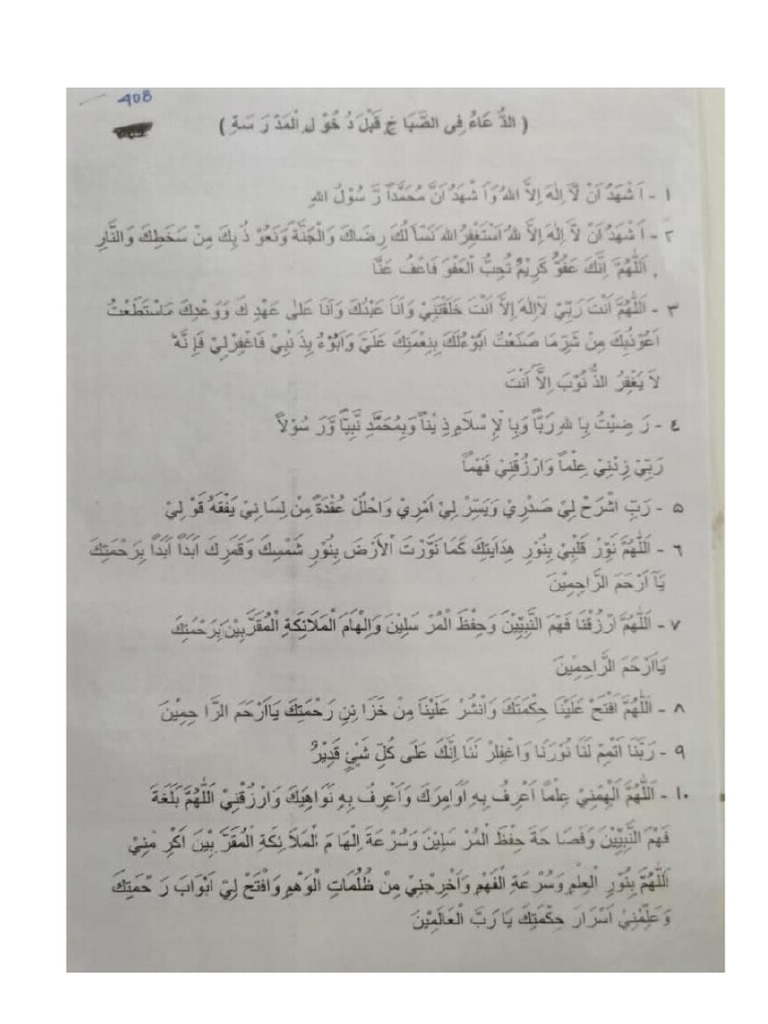 408
( الدُّعَاءُ فِى الصَّبَاحِ قَبْلَ دُخُوْلِ الْمَدْرَسَةِ )
١ - اَشْهَدُ اَنْ لَّا اِلٰهَ اِلَّا اللهُ وَاَشْهَدُ اَنَّ مُحَمَّداً رَّسُوْلُ اللهِ
٢ - اَشْهَدُ اَنْ لَّا اِلٰهَ اِلَّا اللهُ اَسْتَغْفِرُ اللهَ نَسْاَلُكَ رِضَاكَ وَالْجَنَّةَ وَنَعُوْذُ بِكَ مِنْ سَخَطِكَ وَالنَّارِ
اَللّٰهُمَّ اِنَّكَ عَفُوٌّ كَرِيْمٌ تُحِبُّ الْعَفْوَ فَاعْفُ عَنَّا
٣ - اَللّٰهُمَّ اَنْتَ رَبِّيْ لَآاِلٰهَ اِلَّا اَنْتَ خَلَقْتَنِيْ وَاَنَا عَبْدُكَ وَاَنَا عَلٰى عَهْدِكَ وَوَعْدِكَ مَاسْتَطَعْتُ
اَعُوْذُبِكَ مِنْ شَرِّ مَا صَنَعْتُ اَبُوْءُلَكَ بِنِعْمَتِكَ عَلَيَّ وَاَبُوْءُ بِذَنْبِيْ فَاغْفِرْلِيْ فَاِنَّهُ
لَا يَغْفِرُ الذُّنُوْبَ اِلَّا اَنْتَ
٤ - رَضِيْتُ بِاللهِ رَبًّا وَبِالْاِسْلَامِ دِيْنًا وَبِمُحَمَّدٍ نَّبِيًّا وَّرَسُوْلاً
رَبِّيْ زِدْنِيْ عِلْماً وَارْزُقْنِيْ فَهْماً
٥ - رَبِّ اشْرَحْ لِيْ صَدْرِيْ وَيَسِّرْ لِيْ اَمْرِيْ وَاحْلُلْ عُقْدَةً مِنْ لِسَانِيْ يَفْقَهُ قَوْلِيْ
٦ - اَللّٰهُمَّ نَوِّرْ قَلْبِيْ بِنُوْرِ هِدَايَتِكَ كَمَا نَوَّرْتَ الْاَرْضَ بِنُوْرِ شَمْسِكَ وَقَمَرِكَ اَبَدًا اَبَدًا بِرَحْمَتِكَ
يَآ اَرْحَمَ الرَّاحِمِيْنَ
٧ - اَللّٰهُمَّ ارْزُقْنَا فَهْمَ النَّبِيِّيْنَ وَحِفْظَ الْمُرْسَلِيْنَ وَاِلْهَامَ الْمَلَائِكَةِ الْمُقَرَّبِيْنَ بِرَحْمَتِكَ
يَااَرْحَمَ الرَّاحِمِيْنَ
٨ - اَللّٰهُمَّ افْتَحْ عَلَيْنَا حِكْمَتَكَ وَانْشُرْ عَلَيْنَا مِنْ خَزَائِنِ رَحْمَتِكَ يَااَرْحَمَ الرَّاحِمِيْنَ
٩ - رَبَّنَا اَتْمِمْ لَنَا نُوْرَنَا وَاغْفِلْر لَنَا اِنَّكَ عَلَى كُلِّ شَيْئٍ قَدِيْرٌ
١٠ - اَللّٰهُمَّ اَلْهِمْنِيْ عِلْمًا اَعْرِفُ بِهِ اَوَامِرَكَ وَاَعْرِفُ بِهِ نَوَاهِيَكَ وَارْزُقْنِيْ اَللّٰهُمَّ بَلَغَةَ
فَهْمَ النَّبِيِّيْنَ وَفَصَاحَةَ حِفْظَ الْمُرْسَلِيْنَ وَسُرْعَةَ اِلْهَامَ الْمَلَائِكَةِ الْمُقَرَّبِيْنَ اَكْرِمْنِيْ
اَللّٰهُمَّ بِنُوْرِ الْعِلْمِ وَسُرْعَةِ الْفَهْمِ وَاَخْرِجْنِيْ مِنْ ظُلُمَاتِ الْوَهْمِ وَافْتَحْ لِيْ اَبْوَابَ رَحْمَتِكَ
وَعَلِّمْنِيْ اَسْرَارَ حِكْمَتِكَ يَارَبَّ الْعَالَمِيْنَ